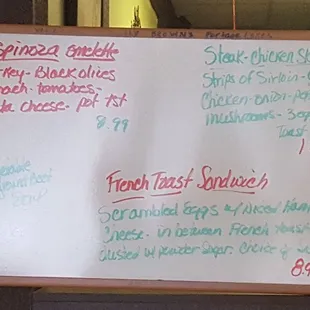 Spinoza Omelette
rkey- Black olives
nach- tomatoes-
ta cheese- pot tst
8.99
Steak-Chicken
Strips of Sirloin-
Chicken-onion-
mushrooms-
Toast
Ground Beef
French Toast Sandwich
Scrambled Eggs w/ Diced Ham
Cheese- in between French Toast
dusted w/ powder sugar. Choice of
8.9